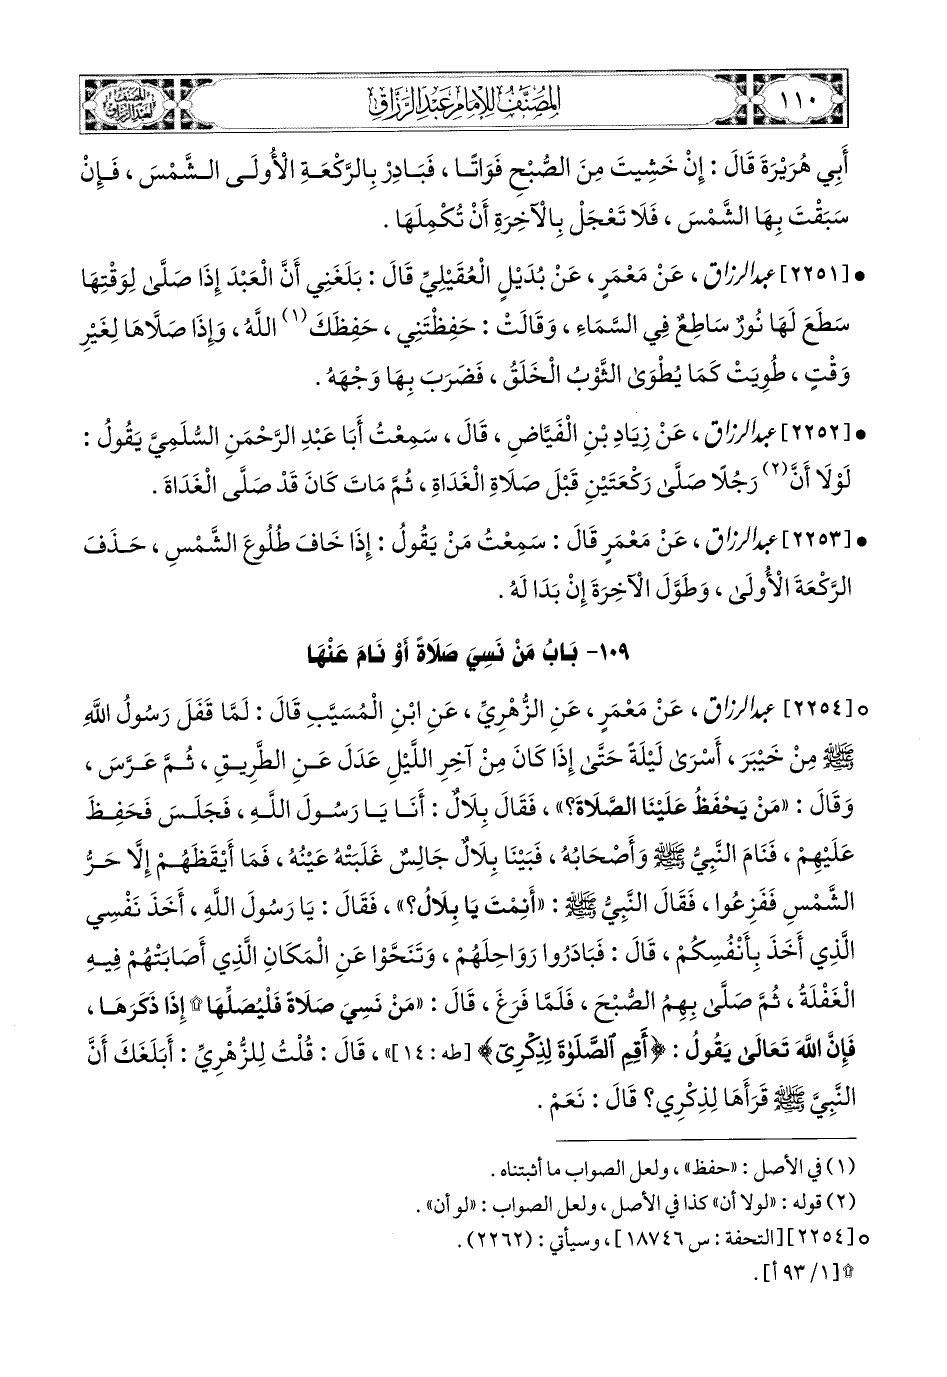 ١١٠
المصنف للإمام عبد الرزاق
المصنف لعبد الرزاق
أَبِي هُرَيْرَةَ قَالَ : إِنْ خَشِيتَ مِنَ الصُّبْحِ فَوَاتًا ، فَبَادِرْ بِالرَّكْعَةِ الْأُولَى الشَّمْسَ ، فَإِنْ
سَبَقْتَ بِهَا الشَّمْسَ ، فَلَا تَعْجَلْ بِالْآخِرَةِ أَنْ تُكْمِلَهَا .
• [٢٢٥١] عبد الرزاق ، عَنْ مَعْمَرٍ ، عَنْ بُدَيْلٍ الْعُقَيْلِيِّ قَالَ : بَلَغَنِي أَنَّ الْعَبْدَ إِذَا صَلَّىٰ لِوَقْتِهَا
سَطَعَ لَهَا نُورٌ سَاطِعٌ فِي السَّمَاءِ ، وَقَالَتْ : حَفِظْتَنِي ، حَفِظَكَ (١) اللَّهُ ، وَإِذَا صَلَّاهَا لِغَيْرِ
وَقْتٍ ، طُوِيَتْ كَمَا يُطْوَى الثَّوْبُ الْخَلَقُ ، فَضَرَبَ بِهَا وَجْهَهُ .
• [٢٢٥٢] عبد الرزاق ، عَنْ زِيَادِ بْنِ الْفَيَّاضِ ، قَالَ ، سَمِعْتُ أَبَا عَبْدِ الرَّحْمَنِ السُّلَمِيَّ يَقُولُ :
لَوْلَا أَنَّ (٢) رَجُلًا صَلَّىٰ رَكْعَتَيْنِ قَبْلَ صَلَاةِ الْغَدَاةِ ، ثُمَّ مَاتَ كَانَ قَدْ صَلَّى الْغَدَاةَ .
• [٢٢٥٣] عبد الرزاق ، عَنْ مَعْمَرٍ قَالَ : سَمِعْتُ مَنْ يَقُولُ : إِذَا خَافَ طُلُوعَ الشَّمْسِ ، حَذَفَ
الرَّكْعَةَ الْأُولَىٰ ، وَطَوَّلَ الْآخِرَةَ إِنْ بَدَا لَهُ .
١٠٩- بَابُ مَنْ نَسِيَ صَلَاةً أَوْ نَامَ عَنْهَا
○ [٢٢٥٤] عبد الرزاق ، عَنْ مَعْمَرٍ ، عَنِ الزُّهْرِيِّ ، عَنِ ابْنِ الْمُسَيَّبِ قَالَ : لَمَّا قَفَلَ رَسُولُ اللَّهِ
ﷺ مِنْ خَيْبَرَ ، أَسْرَىٰ لَيْلَةً حَتَّىٰ إِذَا كَانَ مِنْ آخِرِ اللَّيْلِ عَدَلَ عَنِ الطَّرِيقِ ، ثُمَّ عَرَّسَ ،
وَقَالَ : «مَنْ يَحْفَظُ عَلَيْنَا الصَّلَاةَ؟» ، فَقَالَ بِلَالٌ : أَنَا يَا رَسُولَ اللَّهِ ، فَجَلَسَ فَحَفِظَ
عَلَيْهِمْ ، فَنَامَ النَّبِيُّ ﷺ وَأَصْحَابُهُ ، فَبَيْنَا بِلَالٌ جَالِسٌ غَلَبَتْهُ عَيْنُهُ ، فَمَا أَيْقَظَهُمْ إِلَّا حَرُّ
الشَّمْسِ فَفَزِعُوا ، فَقَالَ النَّبِيُّ ﷺ : «أَنِمْتَ يَا بِلَالُ؟» ، فَقَالَ : يَا رَسُولَ اللَّهِ ، أَخَذَ نَفْسِي
الَّذِي أَخَذَ بِأَنْفُسِكُمْ ، قَالَ : فَبَادَرُوا رَوَاحِلَهُمْ ، وَتَنَحَّوْا عَنِ الْمَكَانِ الَّذِي أَصَابَتْهُمْ فِيهِ
الْغَفْلَةُ ، ثُمَّ صَلَّىٰ بِهِمُ الصُّبْحَ ، فَلَمَّا فَرَغَ ، قَالَ : «مَنْ نَسِيَ صَلَاةً فَلْيُصَلِّهَا ۩ إِذَا ذَكَرَهَا ،
فَإِنَّ اللَّهَ تَعَالَىٰ يَقُولُ : ﴿أَقِمِ ٱلصَّلَوٰةَ لِذِكْرِىٓ﴾ [طه : ١٤]» ، قَالَ : قُلْتُ لِلزُّهْرِيِّ : أَبَلَغَكَ أَنَّ
النَّبِيَّ ﷺ قَرَأَهَا لِذِكْرِي؟ قَالَ : نَعَمْ .
(١) في الأصل : «حفظ» ، ولعل الصواب ما أثبتناه .
(٢) قوله : «لولا أن» كذا في الأصل ، ولعل الصواب : «لو أن» .
○ [٢٢٥٤] [التحفة : س ١٨٧٤٦] ، وسيأتي : (٢٢٦٢) .
۩ [١/ ٩٣ أ] .